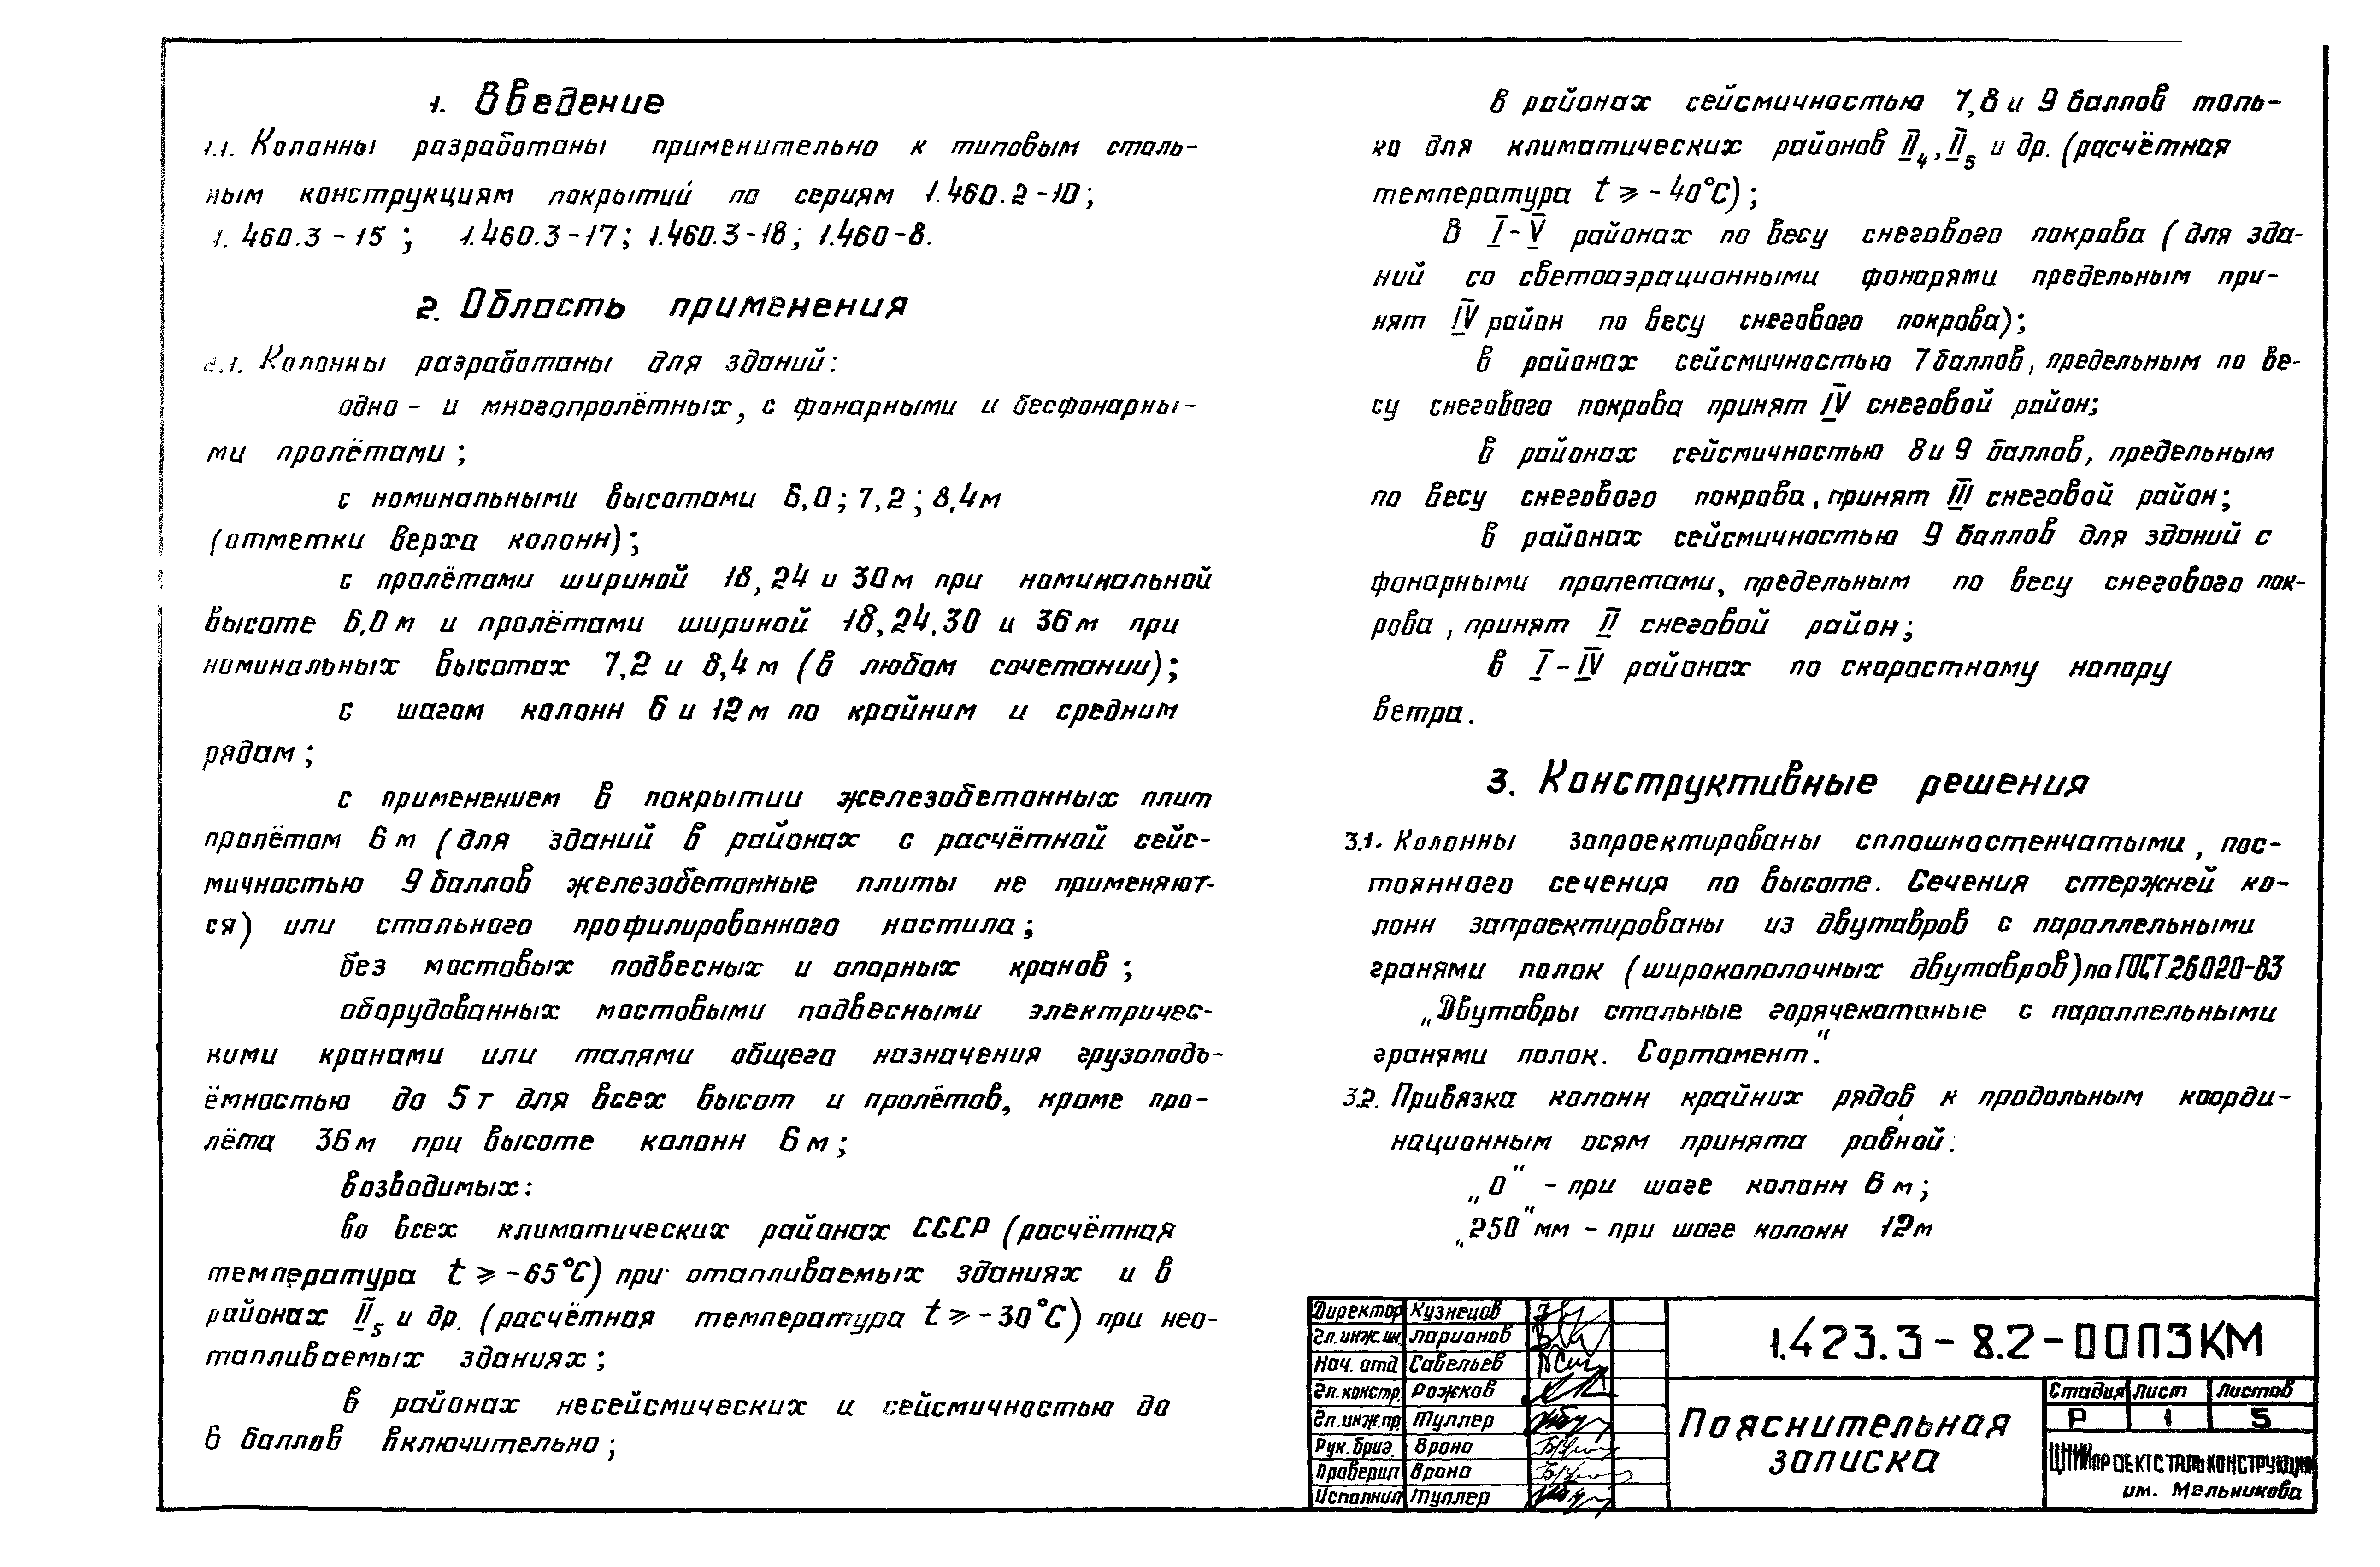 1. Введение
1.1. Колонны разработаны применительно к типовым сталь-
ным конструкциям покрытий по сериям 1.460.2-10;
1.460.3-15; 1.460.3-17; 1.460.3-18; 1.460-8.
2. Область применения
2.1. Колонны разработаны для зданий:
одно- и многопролётных, с фонарными и бесфонарны-
ми пролётами;
с номинальными высотами 6,0; 7,2; 8,4 м
(отметки верха колонн);
с пролётами шириной 18, 24 и 30 м при номинальной
высоте 6,0 м и пролётами шириной 18, 24, 30 и 36 м при
номинальных высотах 7,2 и 8,4 м (в любом сочетании);
с шагом колонн 6 и 12 м по крайним и средним
рядам;
с применением в покрытии железобетонных плит
пролётом 6 м (для зданий в районах с расчётной сейс-
мичностью 9 баллов железобетонные плиты не применяют-
ся) или стального профилированного настила;
без мостовых подвесных и опорных кранов;
оборудованных мостовыми подвесными электричес-
кими кранами или талями общего назначения грузоподъ-
ёмностью до 5 т для всех высот и пролётов, кроме про-
лёта 36 м при высоте колонн 6 м;
возводимых:
во всех климатических районах СССР (расчётная
температура t ⩾ -65°С) при отапливаемых зданиях и в
районах II₅ и др. (расчётная температура t ⩾ -30°С) при нео-
тапливаемых зданиях;
в районах несейсмических и сейсмичностью до
6 баллов включительно;
в районах сейсмичностью 7, 8 и 9 баллов толь-
ко для климатических районов II₄, II₅ и др. (расчётная
температура t ⩾ -40°С);
В I-V районах по весу снегового покрова (для зда-
ний со светоаэрационными фонарями предельным при-
нят IV район по весу снегового покрова);
в районах сейсмичностью 7 баллов, предельным по ве-
су снегового покрова принят IV снеговой район;
в районах сейсмичностью 8 и 9 баллов, предельным
по весу снегового покрова, принят III снеговой район;
в районах сейсмичностью 9 баллов для зданий с
фонарными пролетами, предельным по весу снегового пок-
рова, принят II снеговой район;
в I-IV районах по скоростному напору
ветра.
3. Конструктивные решения
3.1. Колонны запроектированы сплошностенчатыми, пос-
тоянного сечения по высоте. Сечения стержней ко-
лонн запроектированы из двутавров с параллельными
гранями полок (широкополочных двутавров) по ГОСТ 26020-83
„Двутавры стальные горячекатаные с параллельными
гранями полок. Сортамент."
3.2. Привязка колонн крайних рядов к продольным коорди-
национным осям принята равной:
„0" - при шаге колонн 6 м;
„250" мм - при шаге колонн 12 м
Директор Кузнецов
Гл. инж. ин. Ларионов
Нач. отд. Савельев
Гл. констр. Рожков
Гл. инж. пр. Туллер
Рук. бриг. Врона
Проверил Врона
Исполнил Туллер
1.423.3-8.2-00ПЗКМ
Пояснительная
записка
Стадия Лист Листов
Р 1 5
ЦНИИпроектстальконструкция
им. Мельникова